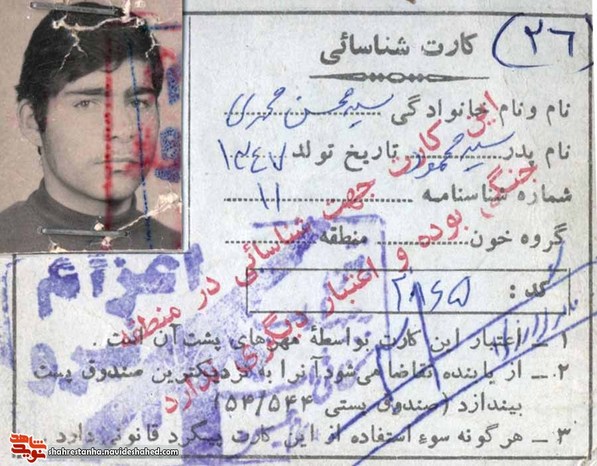 (۲۶)
کارت شناسائی
نام ونام خانوادگی سید محسن
نام پدر سید محمود تاریخ تولد ۱۳۴۷
شماره شناسنامه ۱۱
گروه خون منطقه
کد :
این کارت جهت شناسائی در منطقه
جنگی بوده و اعتبار دیگری ندارد
اعزام
۱ ـ اعتبار این کارت بواسطهٔ مهرهای پشت آن است .
۲ ـ از یابنده تقاضا می‌شود آنرا به نزدیکترین صندوق پست
بیندازد (صندوق پستی ۵۴/۵۴۴)
۳ ـ هرگونه سوء استفاده از این کارت پیگرد قانونی دارد
نوید شاهد
shahrestanha.navideshahed.com